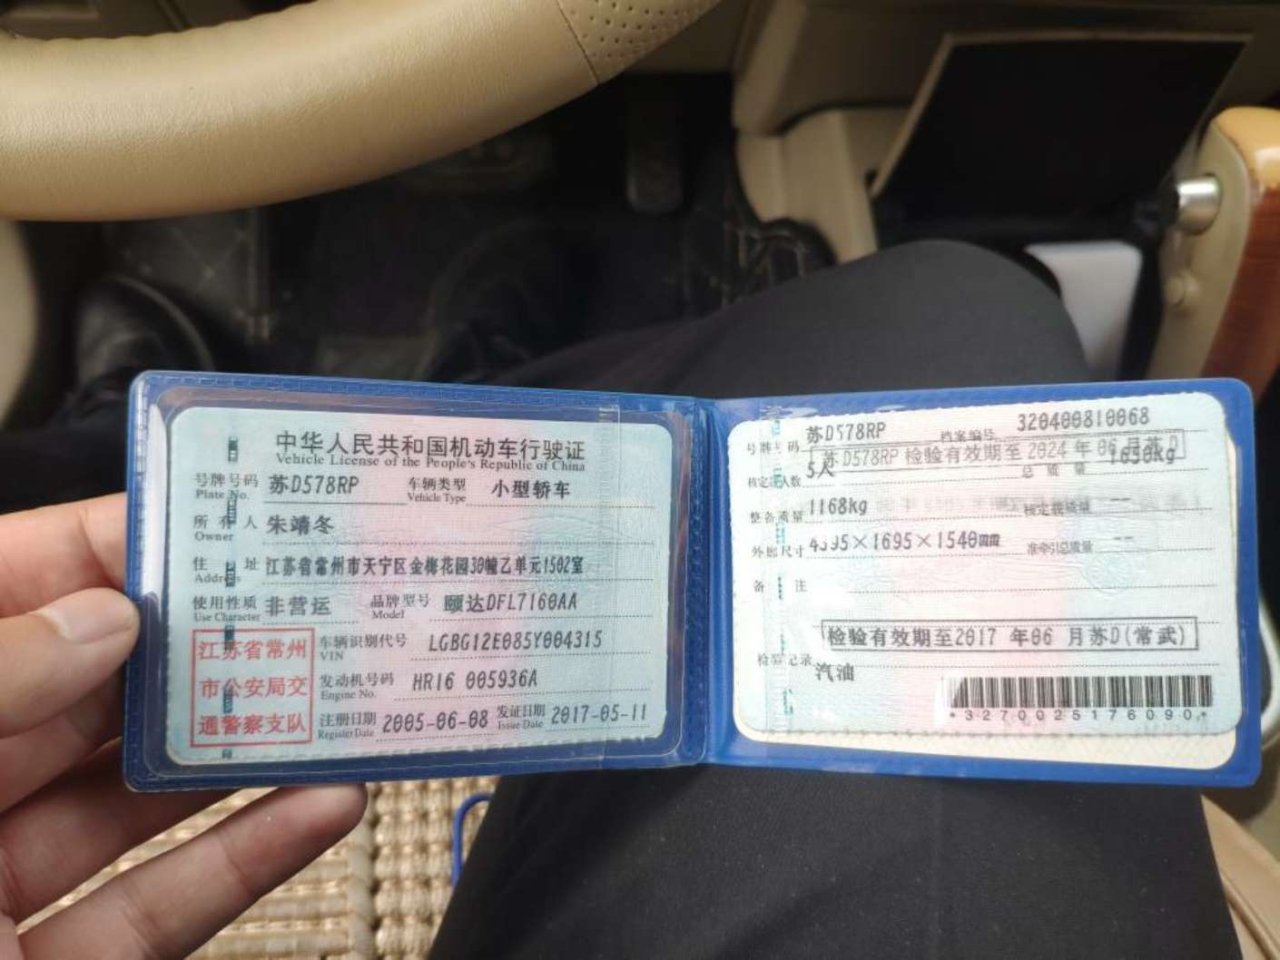 中华人民共和国机动车行驶证
Vehicle License of the People's Republic of China
号牌号码 苏D578RP 车辆类型 小型轿车
Plate No. Vehicle Type
所有人 朱靖冬
Owner
住址 江苏省常州市天宁区金梅花园30幢乙单元1502室
Address
使用性质 非营运 品牌型号 颐达DFL7160AA
Use Character Model
江苏省常州
市公安局交
通警察支队
车辆识别代号 LGBG12E085Y004315
VIN
发动机号码 HR16 005936A
Engine No.
注册日期 2005-06-08 发证日期 2017-05-11
Register Date Issue Date
号牌号码 苏D578RP 档案编号 320400810068
苏D578RP 检验有效期至 2024 年 06 月苏D
核定载人数 5人 总质量 1650kg
整备质量 1168kg 核定载质量 --
外廓尺寸 4395×1695×1540mm 准牵引总质量 --
备注
检验有效期至2017 年06 月苏D(常武)
检验记录
汽油
*3270025176090*